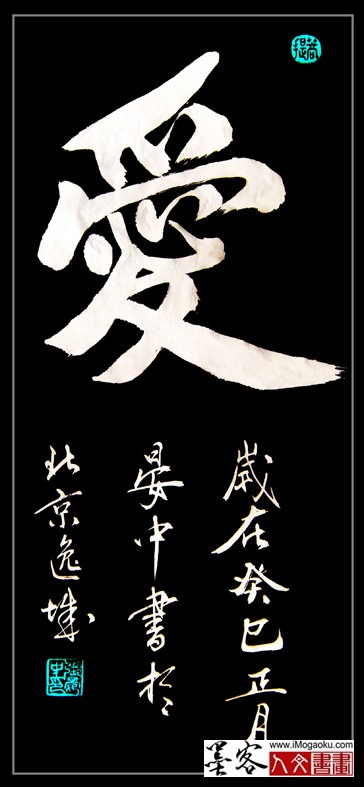 愛
歲在癸巳正月
晏中書於
北京逸城
墨客
www.iMogaoku.com
人文書畫